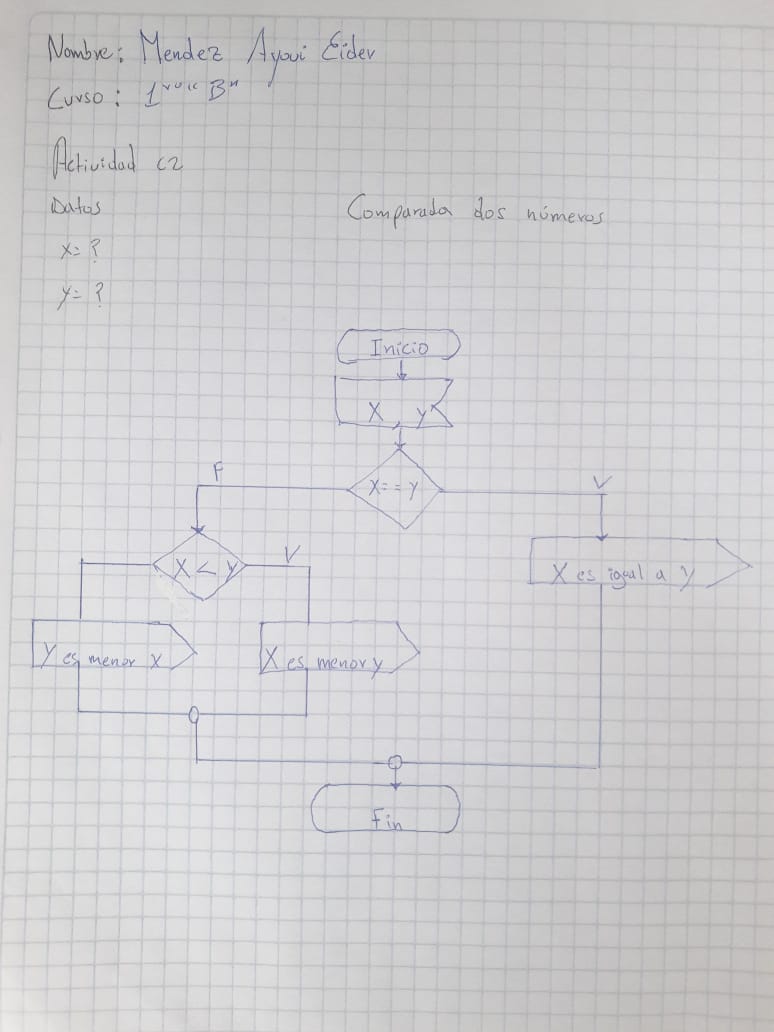 Nombre: Mendez Ayovi Eider
Curso: 1ro "B"
Actividad c2
Datos
Comparada dos números
x= ?
y= ?
Inicio
X , y
X == Y
F
V
X < y
V
X es igual a y
Y es menor X
X es menor y
Fin